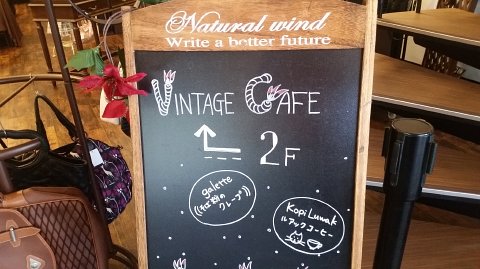 Natural wind
Write a better future
VINTAGE CAFE
2F
galette
そば粉の
クレープ
Kopi Luwak
ルアックコーヒー